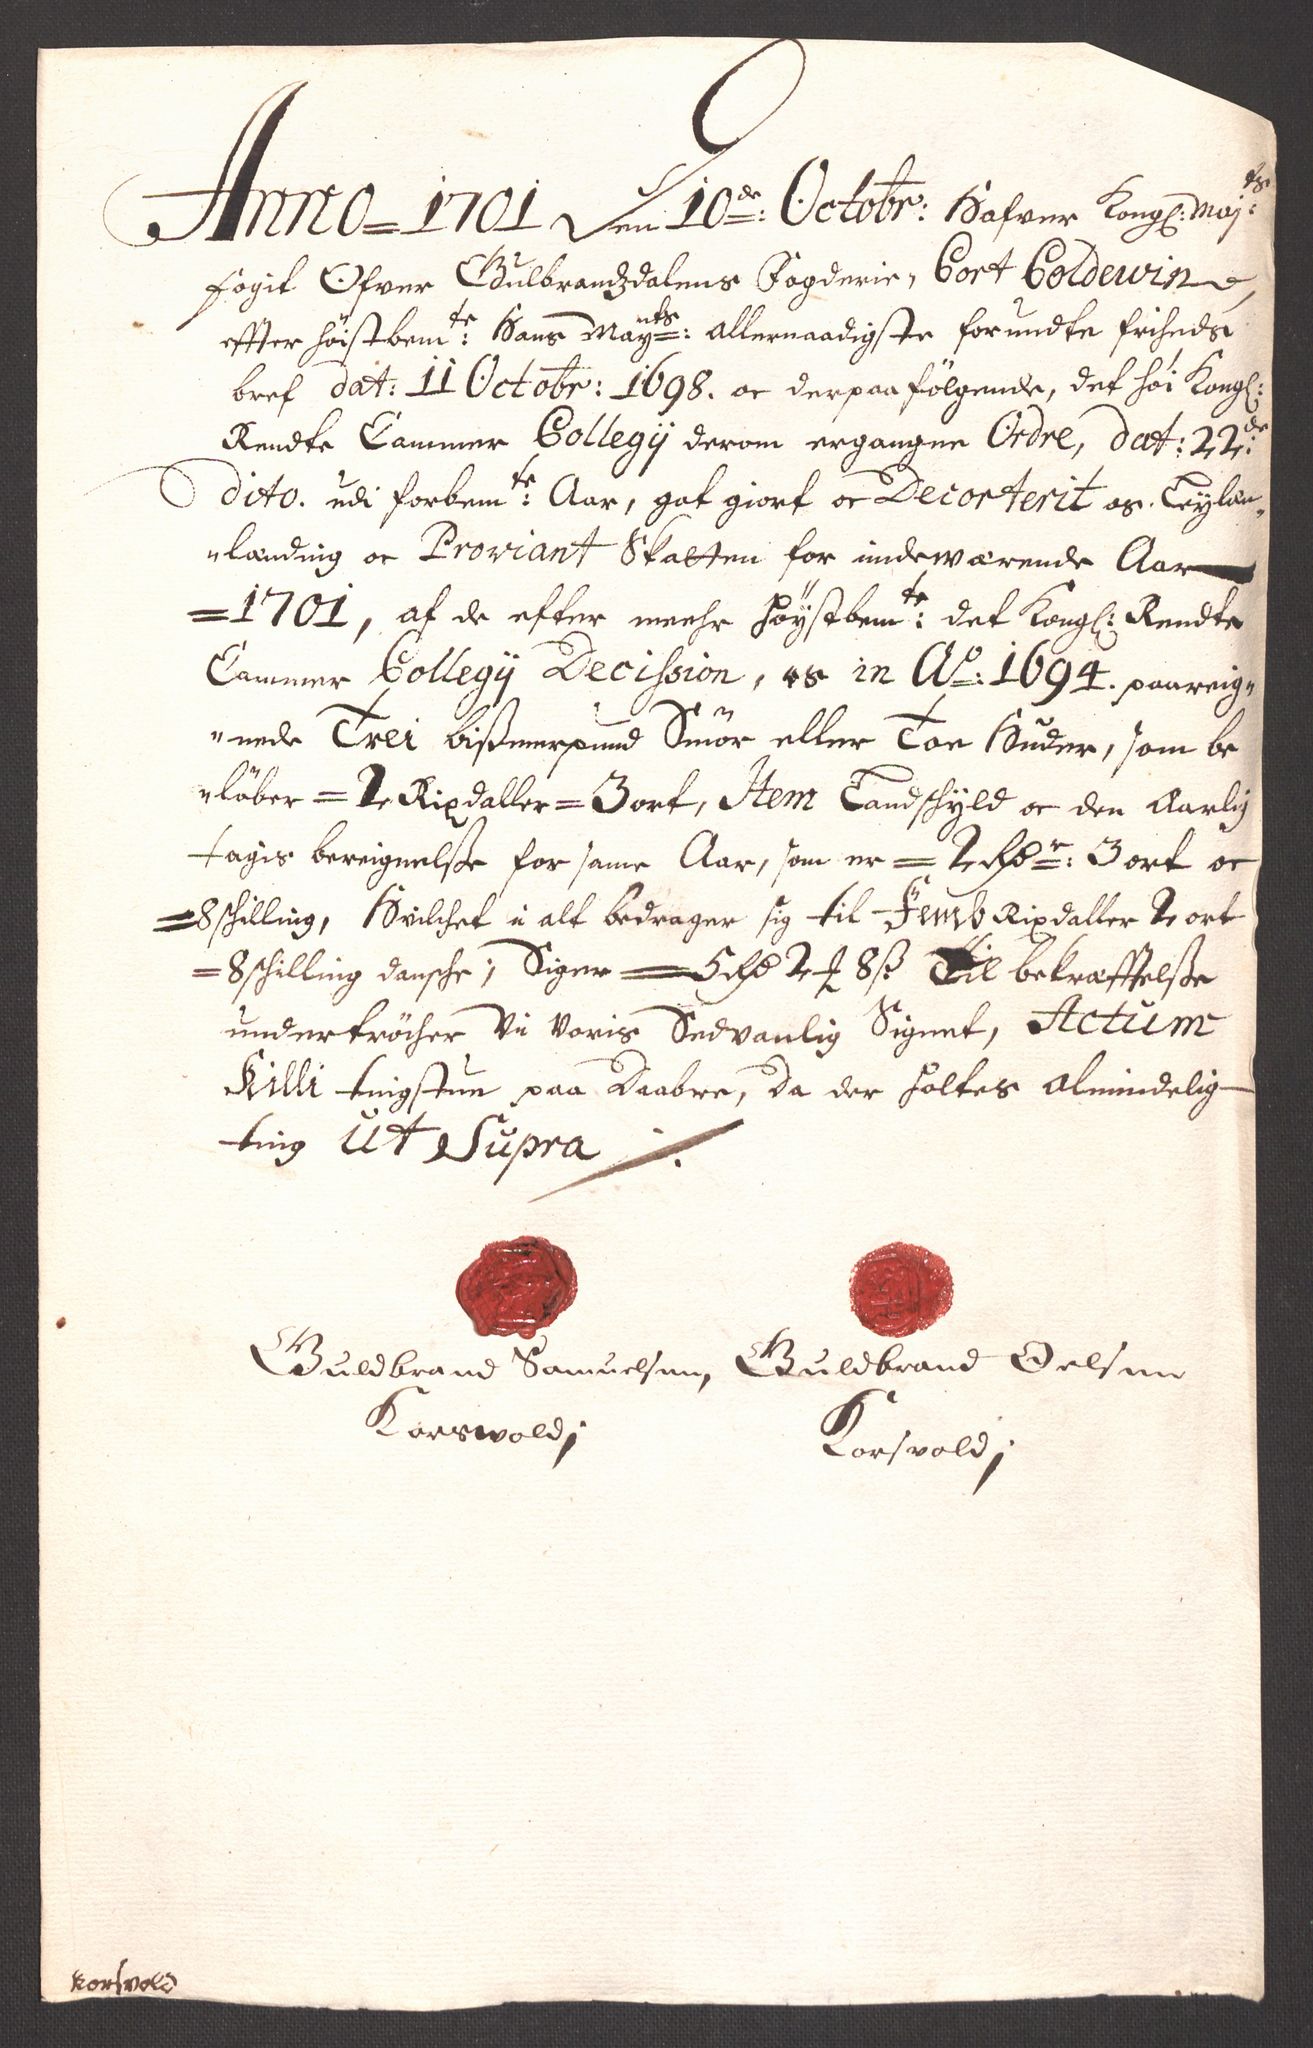 Anno = 1701 Den 10de: Octobr: Hafver Kongl: Maj:ts
fogit Ofver Gulbrandzdalens Fogderie, Cort Coldewin
effter höistbemte: Hans Mayts: allernaadigste forundte friheds
bref dat: 11 Octobr: 1698. oc derpaa fölgende, det höi Kongl:
Rendte Cammer Collegij derom ergangne Ordre, dat: 22de
dito. udi forbemte: Aar, got giort oc Decorterit os. Leylæn„
„lænding oc Proviant Skatten for indeværende Aar
= 1701, af de efter meehr höystbemte: det Kongl: Rendte
Cammer Collegij Decission, os in Ao: 1694. paareig„
„nede Trei bißmerpund Smör eller Toe Huder, som be
„löber = 2 Rixdaller = 3 ort, Item Landschyld oc den Aarlig
tagis bereignelße for same Aar, som er = 2 Rdr: 3 ort oc
= 8 schilling, Hvilchet i alt bedrager sig til Femb Rixdaller 2 ort
= 8 schilling dansche, Siger = 5 Rd 2 ₰ 8 ß Til bekræfftelße
undertröcher Vi Voris Sedvanlig Signet, Actum
Killi tingstue paa Daabre, Da der holtes almindelig
ting Ut Supra
Guldbrand Samuelsen, Guldbrand Oelsen
Korswold; Korsvold;
Korsvold